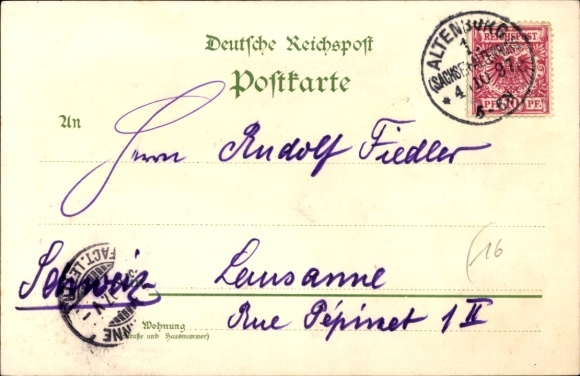 Deutsche Reichspost
Postkarte
ALTENBURG
1
(SACHSEN-
* 4 10 97
5-6N
REICHSPOST
PFENNIG
An
Herrn Rudolf Fiedler
Schweiz
Lausanne
FACT. LE
NNE
Rue Pépinet 1 II
Wohnung
(Straße und Hausnummer)
(16